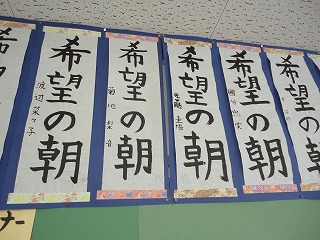 希望の朝
渡辺菜々子
希望の朝
菊地
希望の朝
希望の朝
希望の朝
希望の朝
ナー